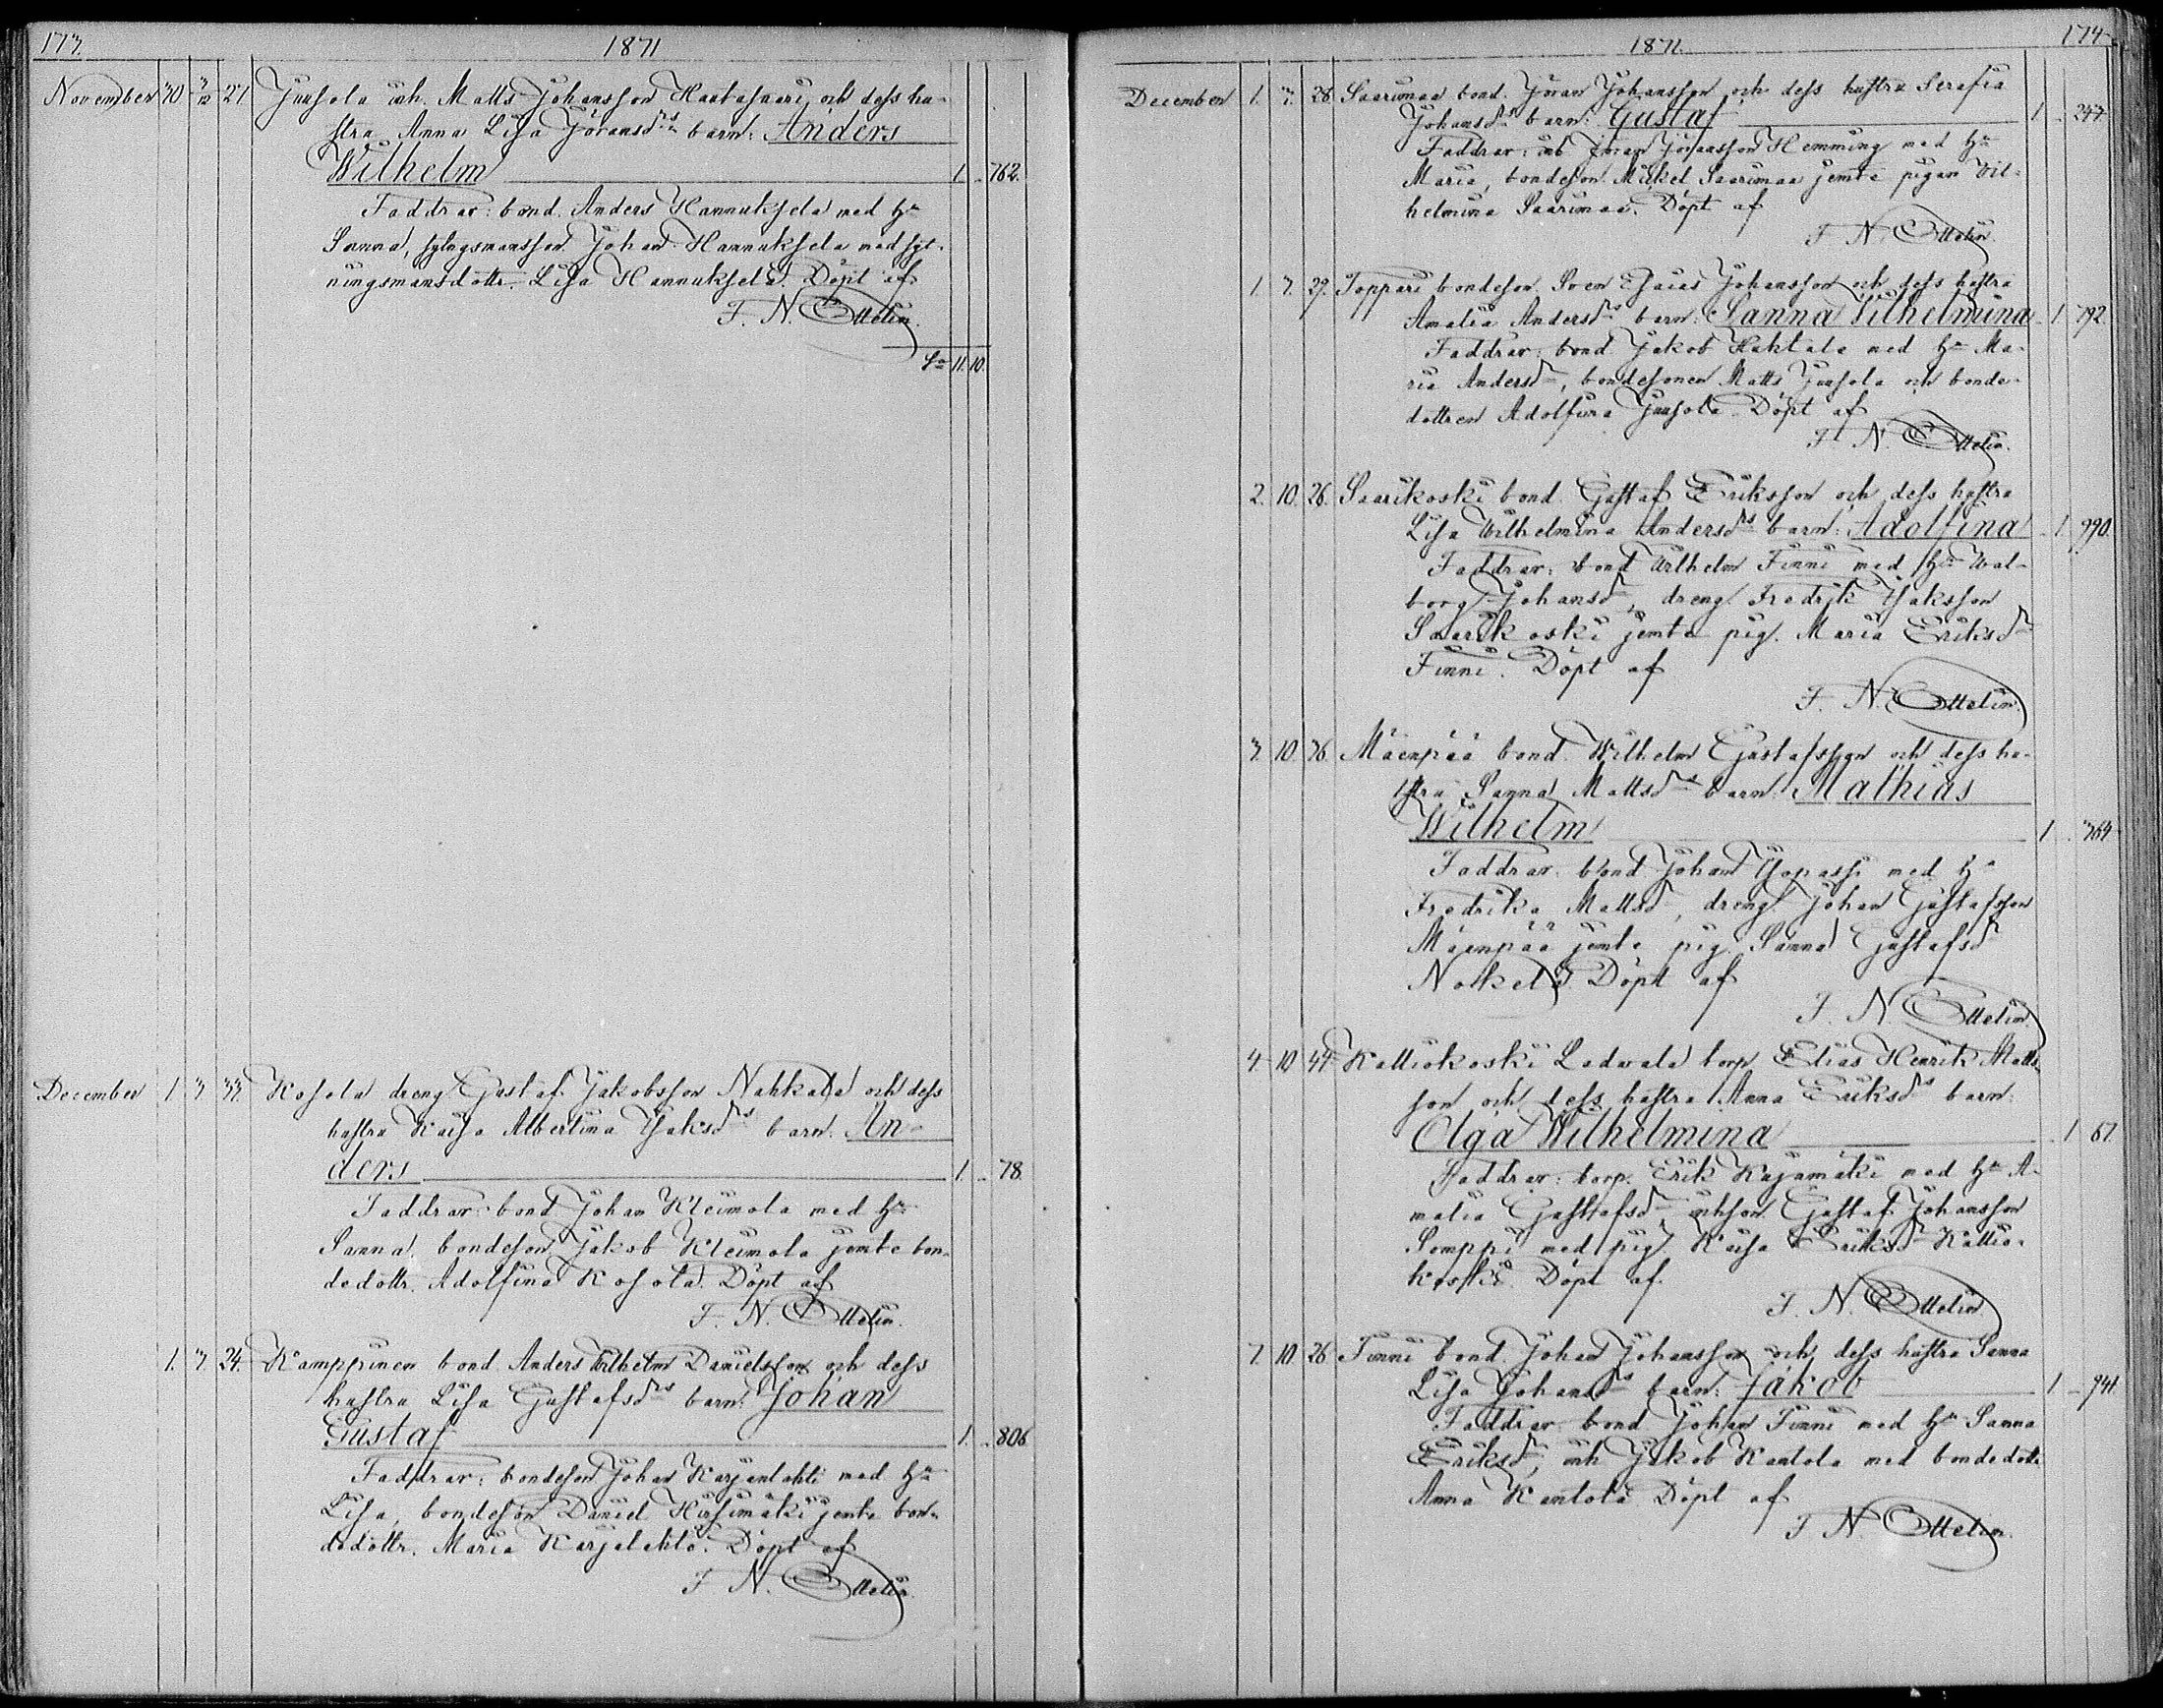 173.
1871
November 30 3/12 27 Juusola inh. Matts Johansson Haakasaari och dess hu-
stru Anna Lisa Göransdrs barn: Anders
Wilhelm 1 762.
Faddrar: bond. Anders Hannuksela med Hu
Sanna, sytngsmansson Johan Hannuksela med syt-
ningsmansdottr. Lisa Hannuksela. Döpt af
F. N. Ottelin.
Sa 11. 10.
December 1 3 33. Kosola dreng Gustaf Jakobsson Nahkala och dess
hustru Kaisa Albertina Isaksdrs barn: An-
ders 1. 78.
Faddrar: bond Johan Kleimola med Hu
Sanna, bondeson Jakob Kleimola jemte bon-
dedottr. Adolfina Kosola. Döpt af
F. N. Ottelin.
1. 3. 24. Kamppinen bond. Anders Wilhelm Danielsson och dess
hustru Lisa Gustafsdrs barn: Johan
Gustaf 1. 806
Faddrar: bondeson Johan Karjanlahti med Hu
Lisa, bondeson Daniel Hirsimäki jemte bon-
dedottr. Maria Karjalahti. Döpt af
F. N. Ottelin.
174
1871.
December 1. 3. 28. Saarimaa bond. Göran Johansson och dess hustru Serafia
Johansdrs barn: Gustaf 1 277
Faddrar: inh Göran Göransson Hemming med Hu
Maria, bondeson Mickel Saarimaa jemte pigan Vil-
helmina Saarimaa. Döpt af
F. N. Ottelin.
1. 3. 29. Toppari bondeson Sven Esaias Johansson och dess hustru
Amalia Andersdrs barn: Sanna Wilhelmina 1 792.
Faddrar: bond. Jakob Haktala med Hu Ma-
ria Andersdr, bondesonen Matts Juusola och bonde-
dottren Adolfina Juusola. Döpt af
F. N. Ottelin.
2. 10. 26. Saarikoski bond. Gustaf Eriksson och dess hustru
Lisa Wilhelmina Andersdrs barn: Adolfina 1 990.
Faddrar: bond Wilhelm Finni med Hu Wal-
borg Johansdr, dreng. Fredrik Isaksson
Saarikoski jemte pig. Maria Eriksdr
Finni. Döpt af
F. N. Ottelin.
3. 10. 36. Mäenpää bond. Wilhelm Gustafsson och dess hu-
stru Sanna Mattsdrs barn: Mathias
Wilhelm 1 364
Faddrar: bond Johan Yopassi med Hu
Fredrika Mattsdr, dreng. Johan Gustafsson
Mäenpää jemte pig. Sanna Gustafsdr
Nolkela. Döpt af
F. N. Ottelin.
4. 10 44 Kalliokoski Ladvala torp. Elias Henrik Matts-
son och dess hustru Anna Eriksdrs barn:
Olga Wilhelmina 1 67.
Faddrar: torp. Erik Rajamäki med Hu A-
malia Gustafsdr, inhson Gustaf Johansson
Somppi med pig. Kaisa Eriksdr Kallio-
koski. Döpt af.
F. N. Ottelin
7. 10. 26 Finni bond. Johan Johansson och dess hustru Sanna
Lisa Johansdrs barn: Jakob 1 941.
Faddrar: bond Johan Finni med Hu Sanna
Eriksdr, inh Jakob Kantola med bondedottr
Anna Kantola Döpt af
F. N. Ottelin.